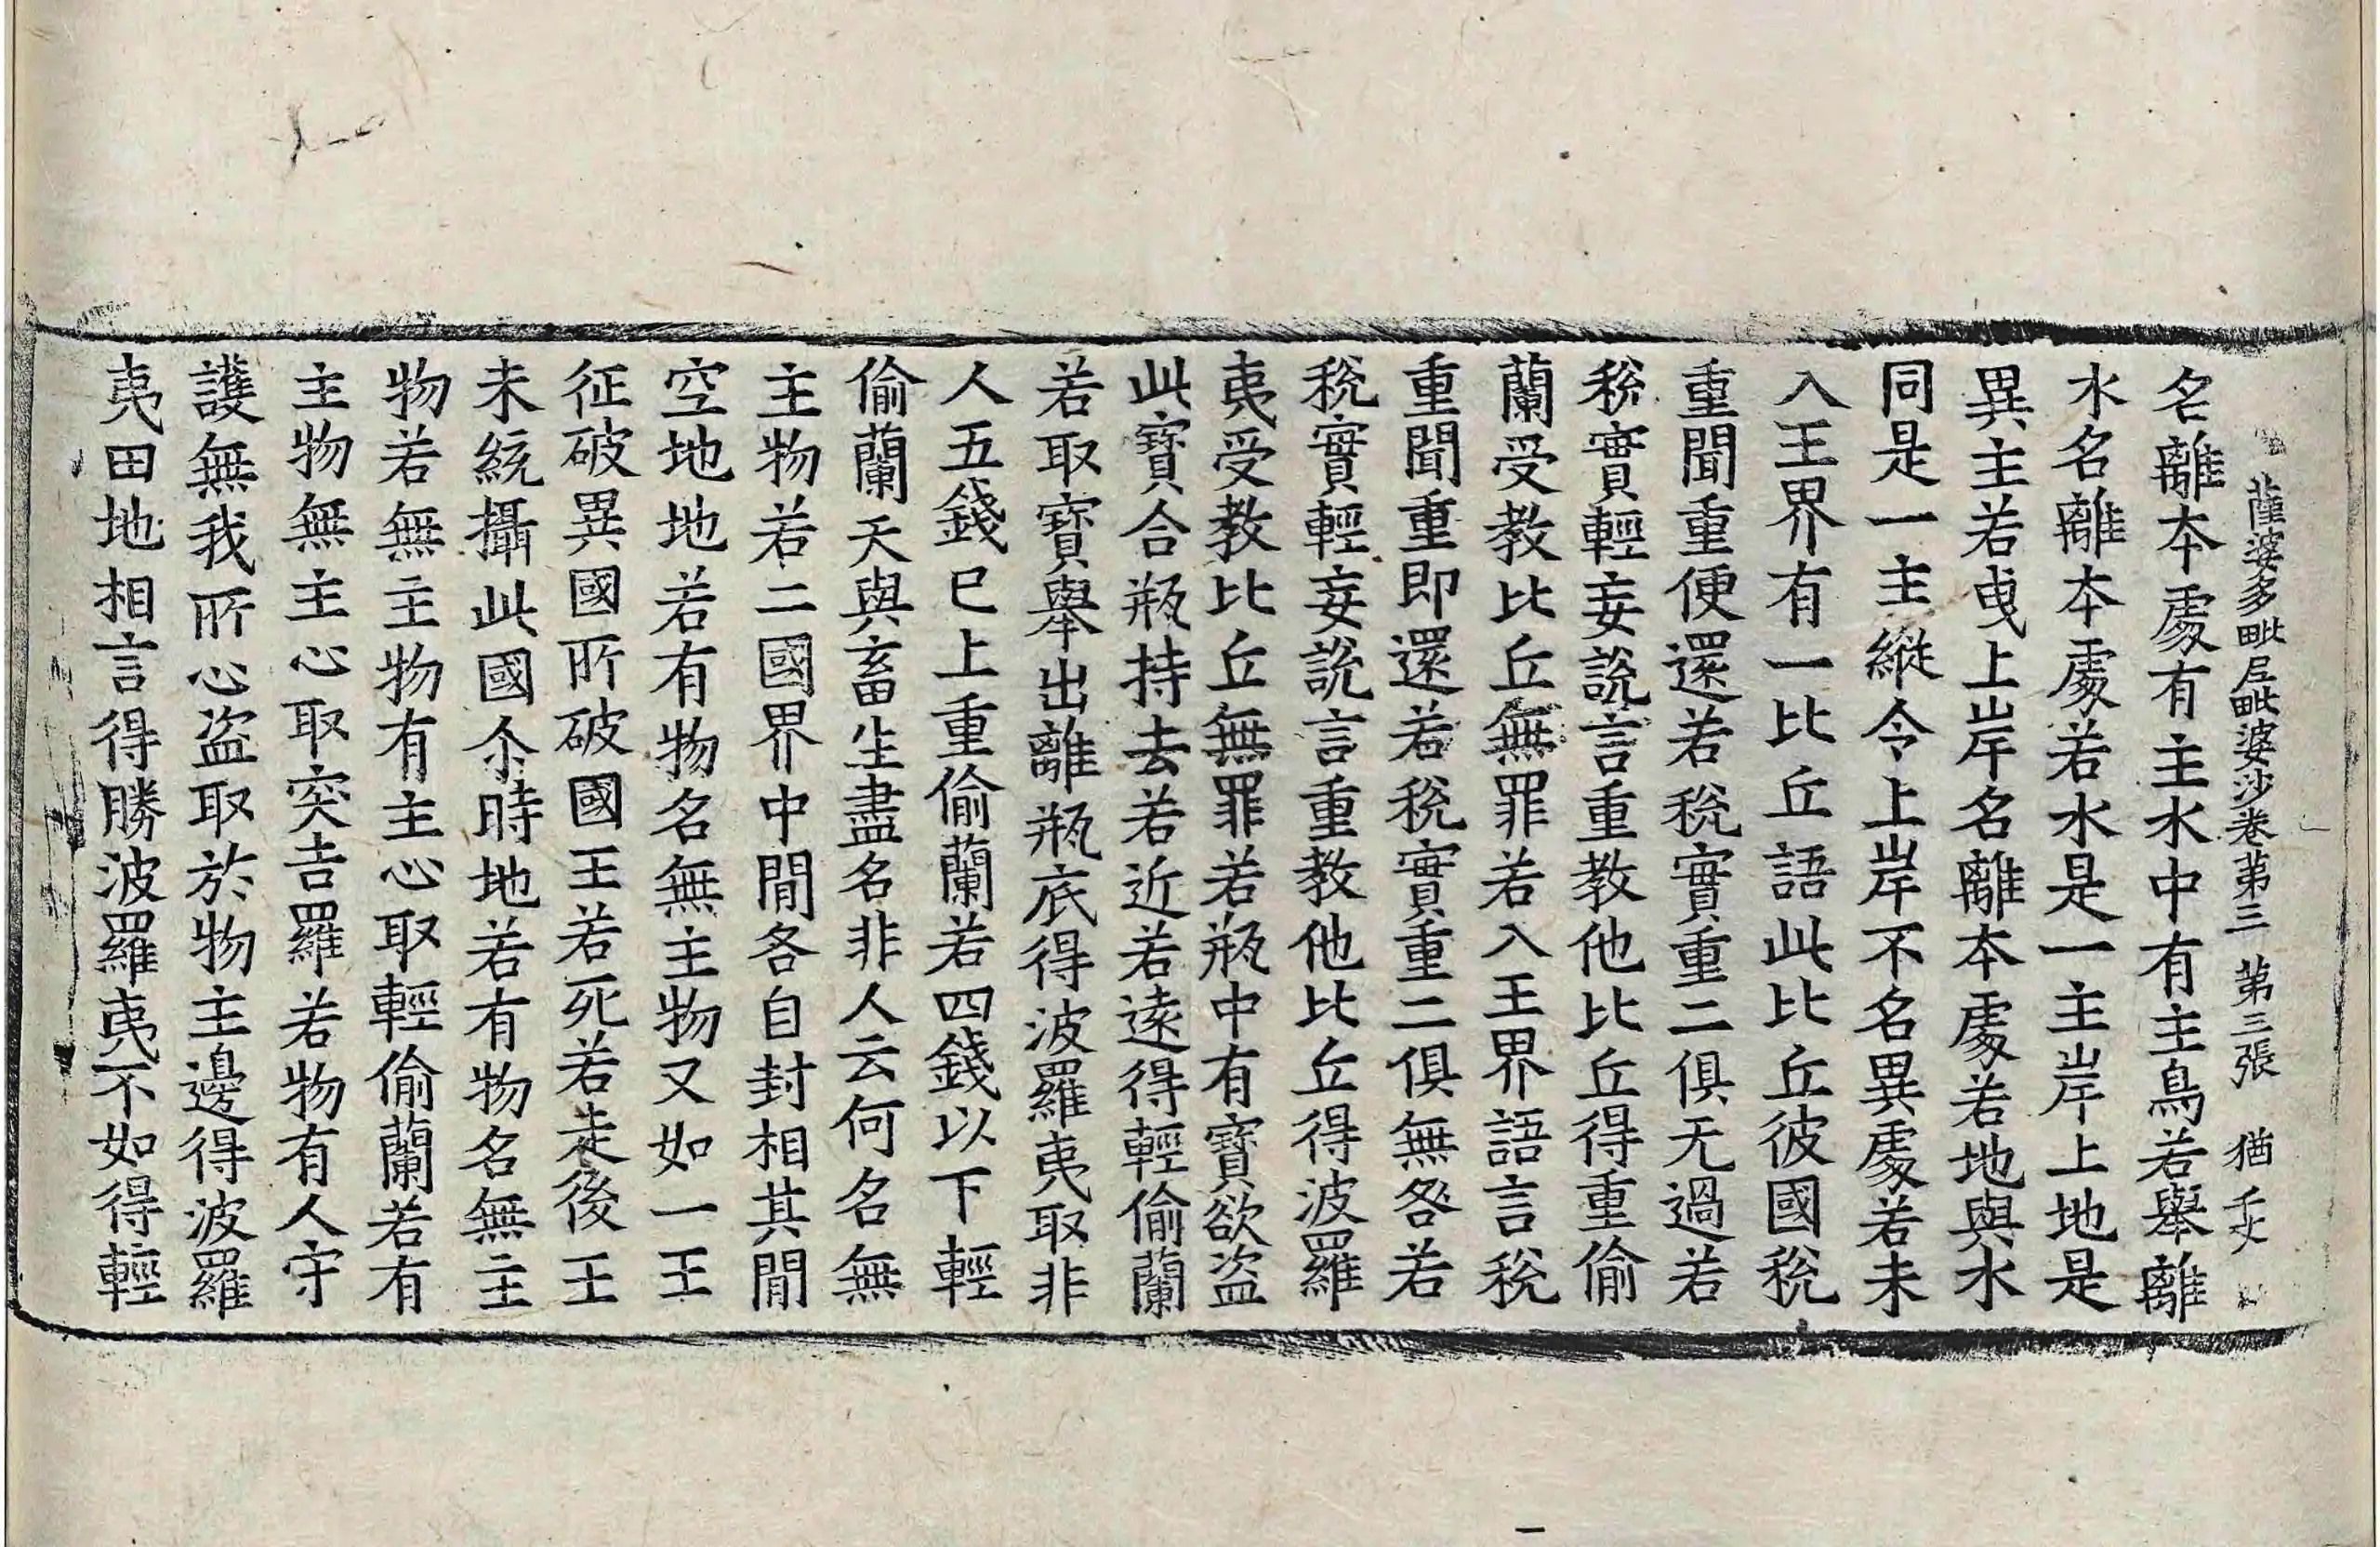 薩婆多毗尼毗婆沙卷第三 第三張 猶
名離本處有主水中有主鳥若舉離
水名離本處若水是一主岸上地是
異主若曳上岸名離本處若地與水
同是一主縱令上岸不名異處若未
入王界有一比丘語此比丘彼國稅
重聞重便還若稅實重二俱无過若
稅實輕妄說言重教他比丘得重偷
蘭受教比丘無罪若入王界語言稅
重聞重即還若稅實重二俱無咎若
稅實輕妄說言重教他比丘得波羅
夷受教比丘無罪若瓶中有寶欲盜
此寶合瓶持去若近若遠得輕偷蘭
若取寶舉出離瓶底得波羅夷取非
人五錢已上重偷蘭若四錢以下輕
偷蘭天與畜生盡名非人云何名無
主物若二國界中間各自封相其間
空地地若有物名無主物又如一王
征破異國所破國王若死若走後王
未統攝此國尒時地若有物名無主
物若無主物有主心取輕偷蘭若有
主物無主心取突吉羅若物有人守
護無我所心盜取於物主邊得波羅
夷田地相言得勝波羅夷不如得輕